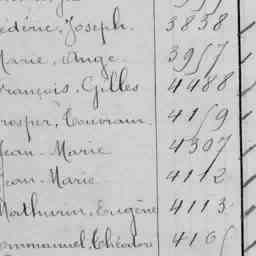 Joseph. 3838
Marie, Ange 3957
François, Gilles 4488
Prosper, 4159
Jean-Marie 4307
Jean-Marie 4112
Mathurin, Eugène 4113
Emmanuel, Théodore 416